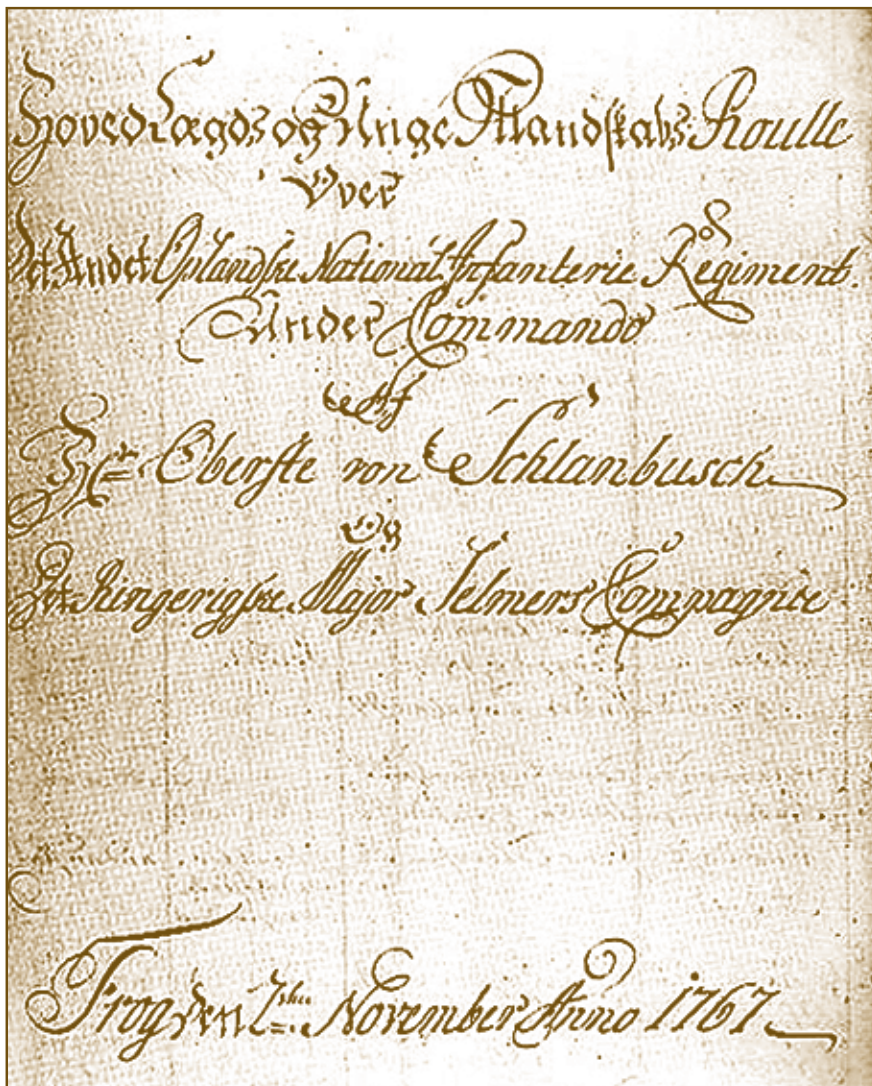 Hoved Lægds og Unge Mandskabs Roulle
Over
Det Andet Oplandske National Infanterie Regiment
Under Commando
Af
Hr Oberste von Schlanbusch
Og
Det Ringerigske Major Selmers Compagnie
Frog den November Anno 1767